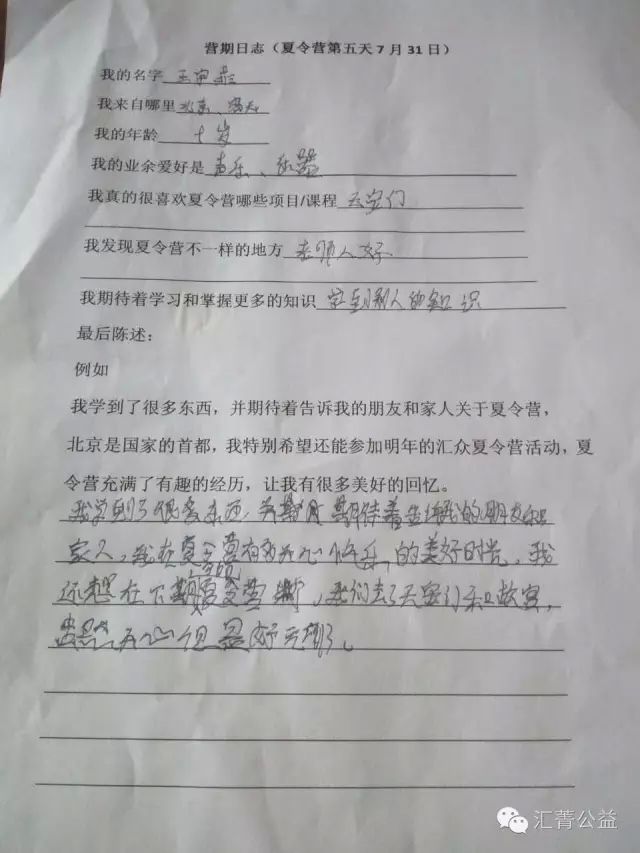 营期日志（夏令营第五天7月31日）
我的名字
我来自哪里 北京、
我的年龄 十岁
我的业余爱好是 声乐、乐器
我真的很喜欢夏令营哪些项目/课程 天安门
我发现夏令营不一样的地方 老师人好
我期待着学习和掌握更多的知识 学到别人的知识
最后陈述：
例如
我学到了很多东西，并期待着告诉我的朋友和家人关于夏令营，
北京是国家的首都，我特别希望还能参加明年的汇众夏令营活动，夏
令营充满了有趣的经历，让我有很多美好的回忆。
我学到了很多东西，期待着告诉我的朋友和
家人，我在夏令营有的美好时光，我
还想在下期夏令营，我们去了天安门和故宫，
虽然但是好
汇菁公益